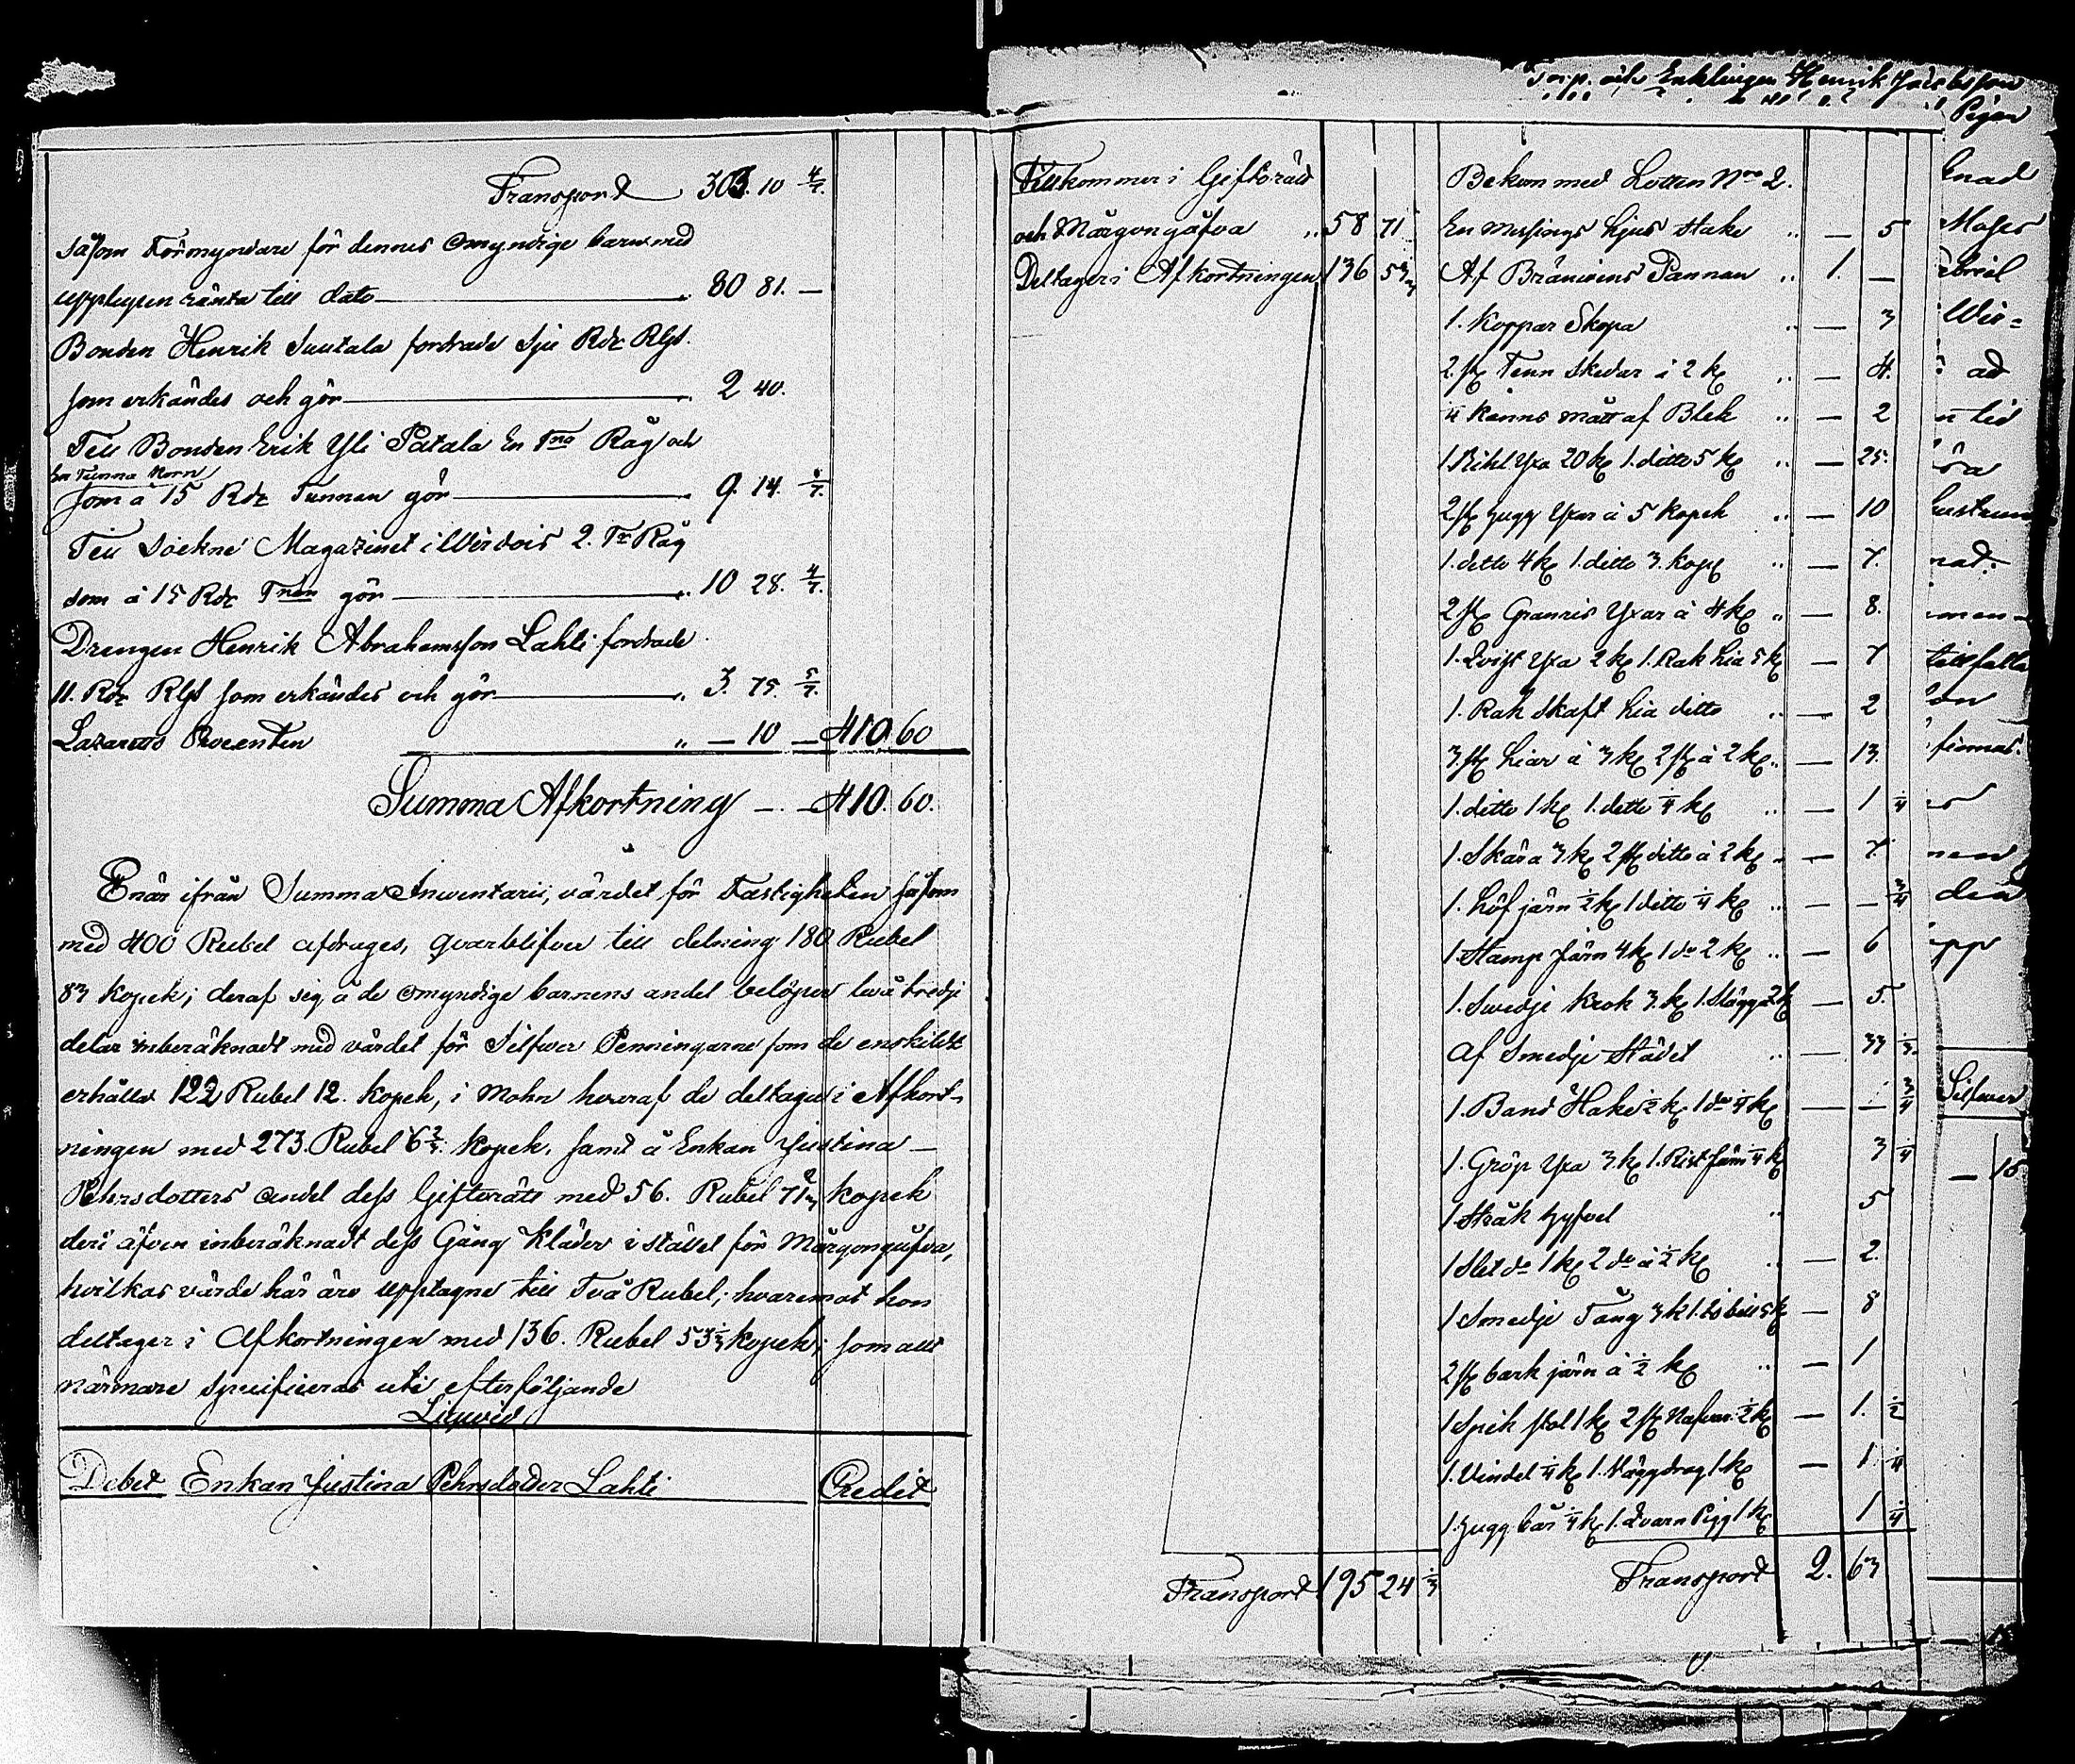 Transport 303. 10 4/7.
såsom Förmyndare för dennes omyndige barn med
upplupen ränta till dato 80 81. —
Bonden Henrik Suutala fordrade Sju Rdr Rgs.
som erkändes och gör 2 40.
Till Bonden Erik Yli Patala En Tna Råg och
en Tunna Korn
som a 15 Rdr Tunnan gör 9. 14. 2/7.
Till Sockne Magazinet i Wirdois 2. Tr Råg
som á 15 Rdr Tnan gör 10 28. 4/7.
Drengen Henrik Abrahamsson Lahti fordrade
11. Rdr Rgs som erkändes och gör 3. 75. 5/7.
Lazaretts Procenten „ — 10 — 410 60
Summa Afkortning — . — 410. 60.
Enär ifrån Summa Inventarii, värdet för Fastigheten såsom
med 400 Rubel afdrages, qvarblifver till delning 180 Rubel
83 kopek; deraf sig å de omyndige barnens andel belöper två tredje
delar inberäknadt med värdet för Silfwer Penningarne som de enskildt
erhålla 122 Rubel 12. kopek, i mohn hvaraf de deltaga i Afkort-
ningen med 273. Rubel 6 2/3. kopek. samt å Enkan Justina
Pehrsdotters andel dess Gifterätt med 56. Rubel 71 kopek
deri äfven inberäknadt dess Gång Kläder i stället för Mårgongåfva,
hvilkas värde här äro upptagne till Två Rubel; hvaremot hon
deltager i Afkortningen med 136. Rubel 53 1/3 kopek; som allt
närmare specificeras uti efterföljande
Liqvid
Debet Enkan Justina Pehrsdotter Lahti Credit
Torp. och Enklingen Henrik Jacobsson
Pigan
Tillkommer i Giftorätt
och Mårgongåfva „ 58 71
Deltager i Afkortningen 136 53 1/3
Transport 195 24 1/3
Bekom med Lotten Nro 2.
En Messings Ljus stake „ — 5
Af Bränwins Pannan „ 1. —
1. Koppar Skopa „ — 3
2. st Tenn Skedar á 2 k „ — 4.
1/4 Kanns mått af Blek „ — 2
1. Bihl Yxa 20 k 1. ditto 5 k „ — 25.
2 st hugg Yxor á 5 kopek „ — 10
1. ditto 4 k 1. ditto 3. kop „ — 7.
2 st Granris Yxar á 4 k „ — 8.
1. Qvist Yxa 2 k 1. Rak Lia 5 k — 7
1. Rak Skaft Lia ditto „ — 2
3. st Liar á 3 k 2 st á 2 k „ — 13.
1. ditto 1 k 1. ditto 1/4 k „ — 1 1/4
1. Skära 3 k 2 st ditto á 2 k „ — 7.
1. Höf järn 1/2 k 1 ditto 1/4 k „ — — 3/4
1. Stamp Järn 4 k 1 do 2 k „ — 6
1. Swedje Krok 3. k 1. Slägga 2 k — 5.
Af Smedje Städet „ — 33 1/3.
1. Band Hake 1/2 k 1 do 1/4 k — — 3/4
1. Gröp Yxa 3 k 1. Rist Järn 1/4 k 3 1/4
1 Stråk hyfvel „ 5
1 Slet do 1 k 2 do á 1/2 k „ — 2.
1 Smedje Tång 3 k 1. Is bill 5 k — 8
2 st bark järn á 1/2 k „ — 1
1 Spik stol 1 k 2 st Nafvar 1/2 k — 1. 1/2
1. Vindel 1/4 k 1. Näggdrag 1 k — 1 1/4
1. hugg bår 1/4 k 1. Qvarn Pigg 1 k 1 1/4
Transport 2. 63
Silfwer
— 15